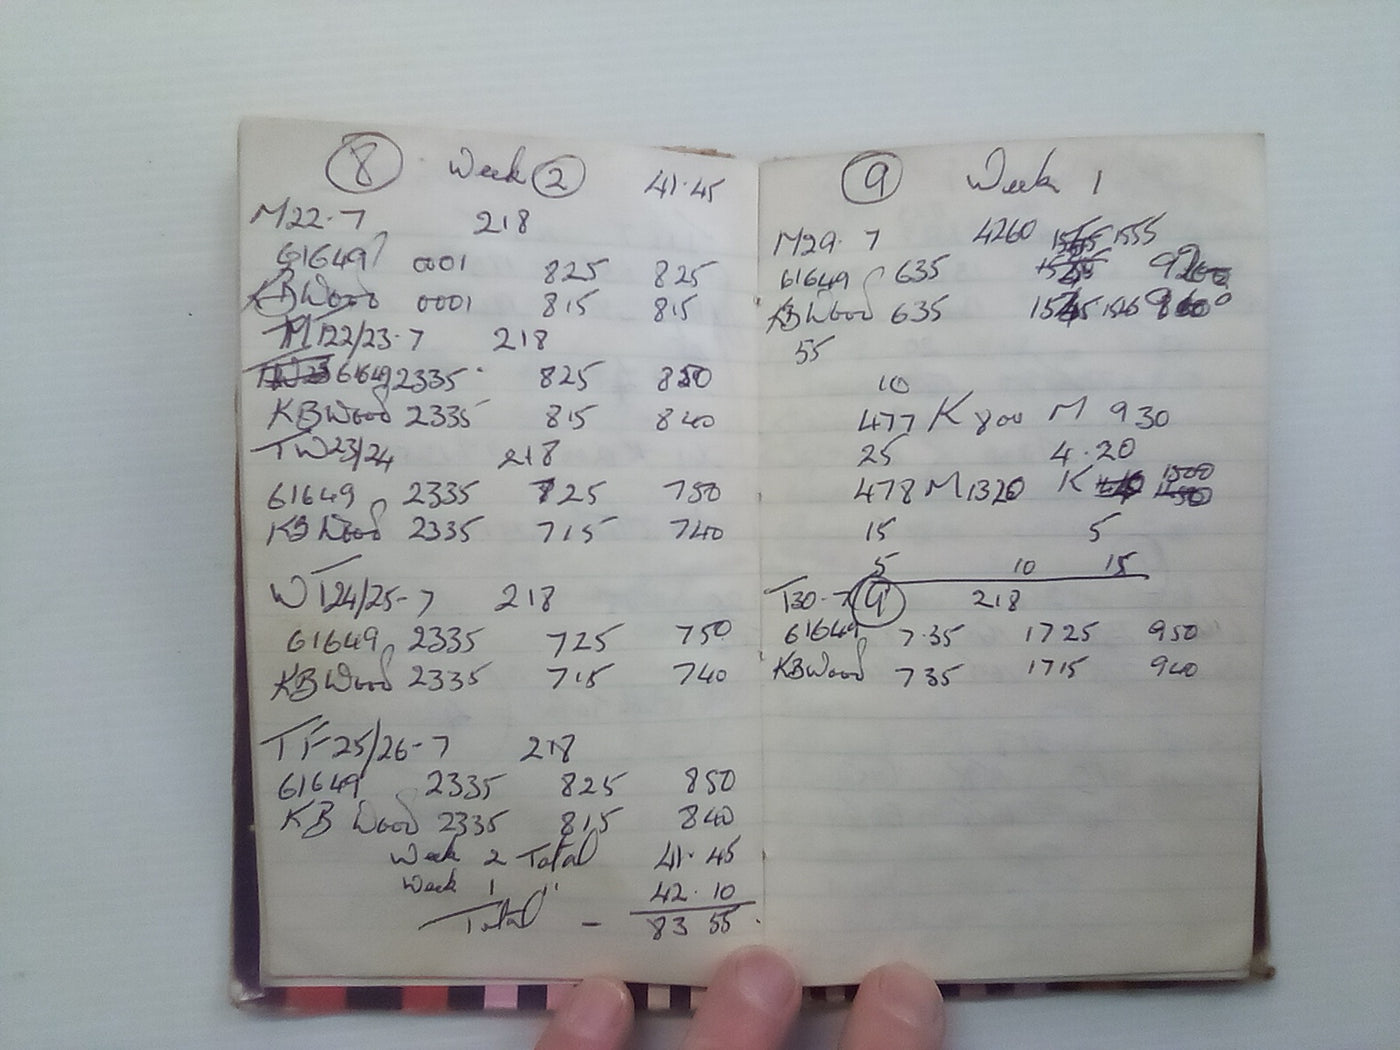 8 Week 2 41.45
M22.7 218
61649 0001 825 825
KBWood 0001 815 815
MT22/23-7 218
61649 2335 825 850
KBWood 2335 815 840
TW23/24 218
61649 2335 725 750
KBWood 2335 715 740
WT24/25-7 218
61649 2335 725 750
KBWood 2335 715 740
TF25/26-7 218
61649 2335 825 850
KB Wood 2335 815 840
Week 2 Total 41.45
Week 1 " 42.10
Total - 83 55
9 Week 1
M29.7 4260 1555
61649 635
KBWood 635
55
10
477 K 800 M 930
25 4.20
478 M1320 K 1500
15 5
5 10 15
T30-7 9 218
61649 7.35 1725 950
KBWood 735 1715 940